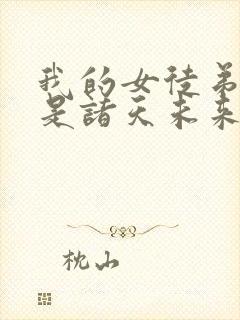 我的女徒弟
是諸天未来
枕山